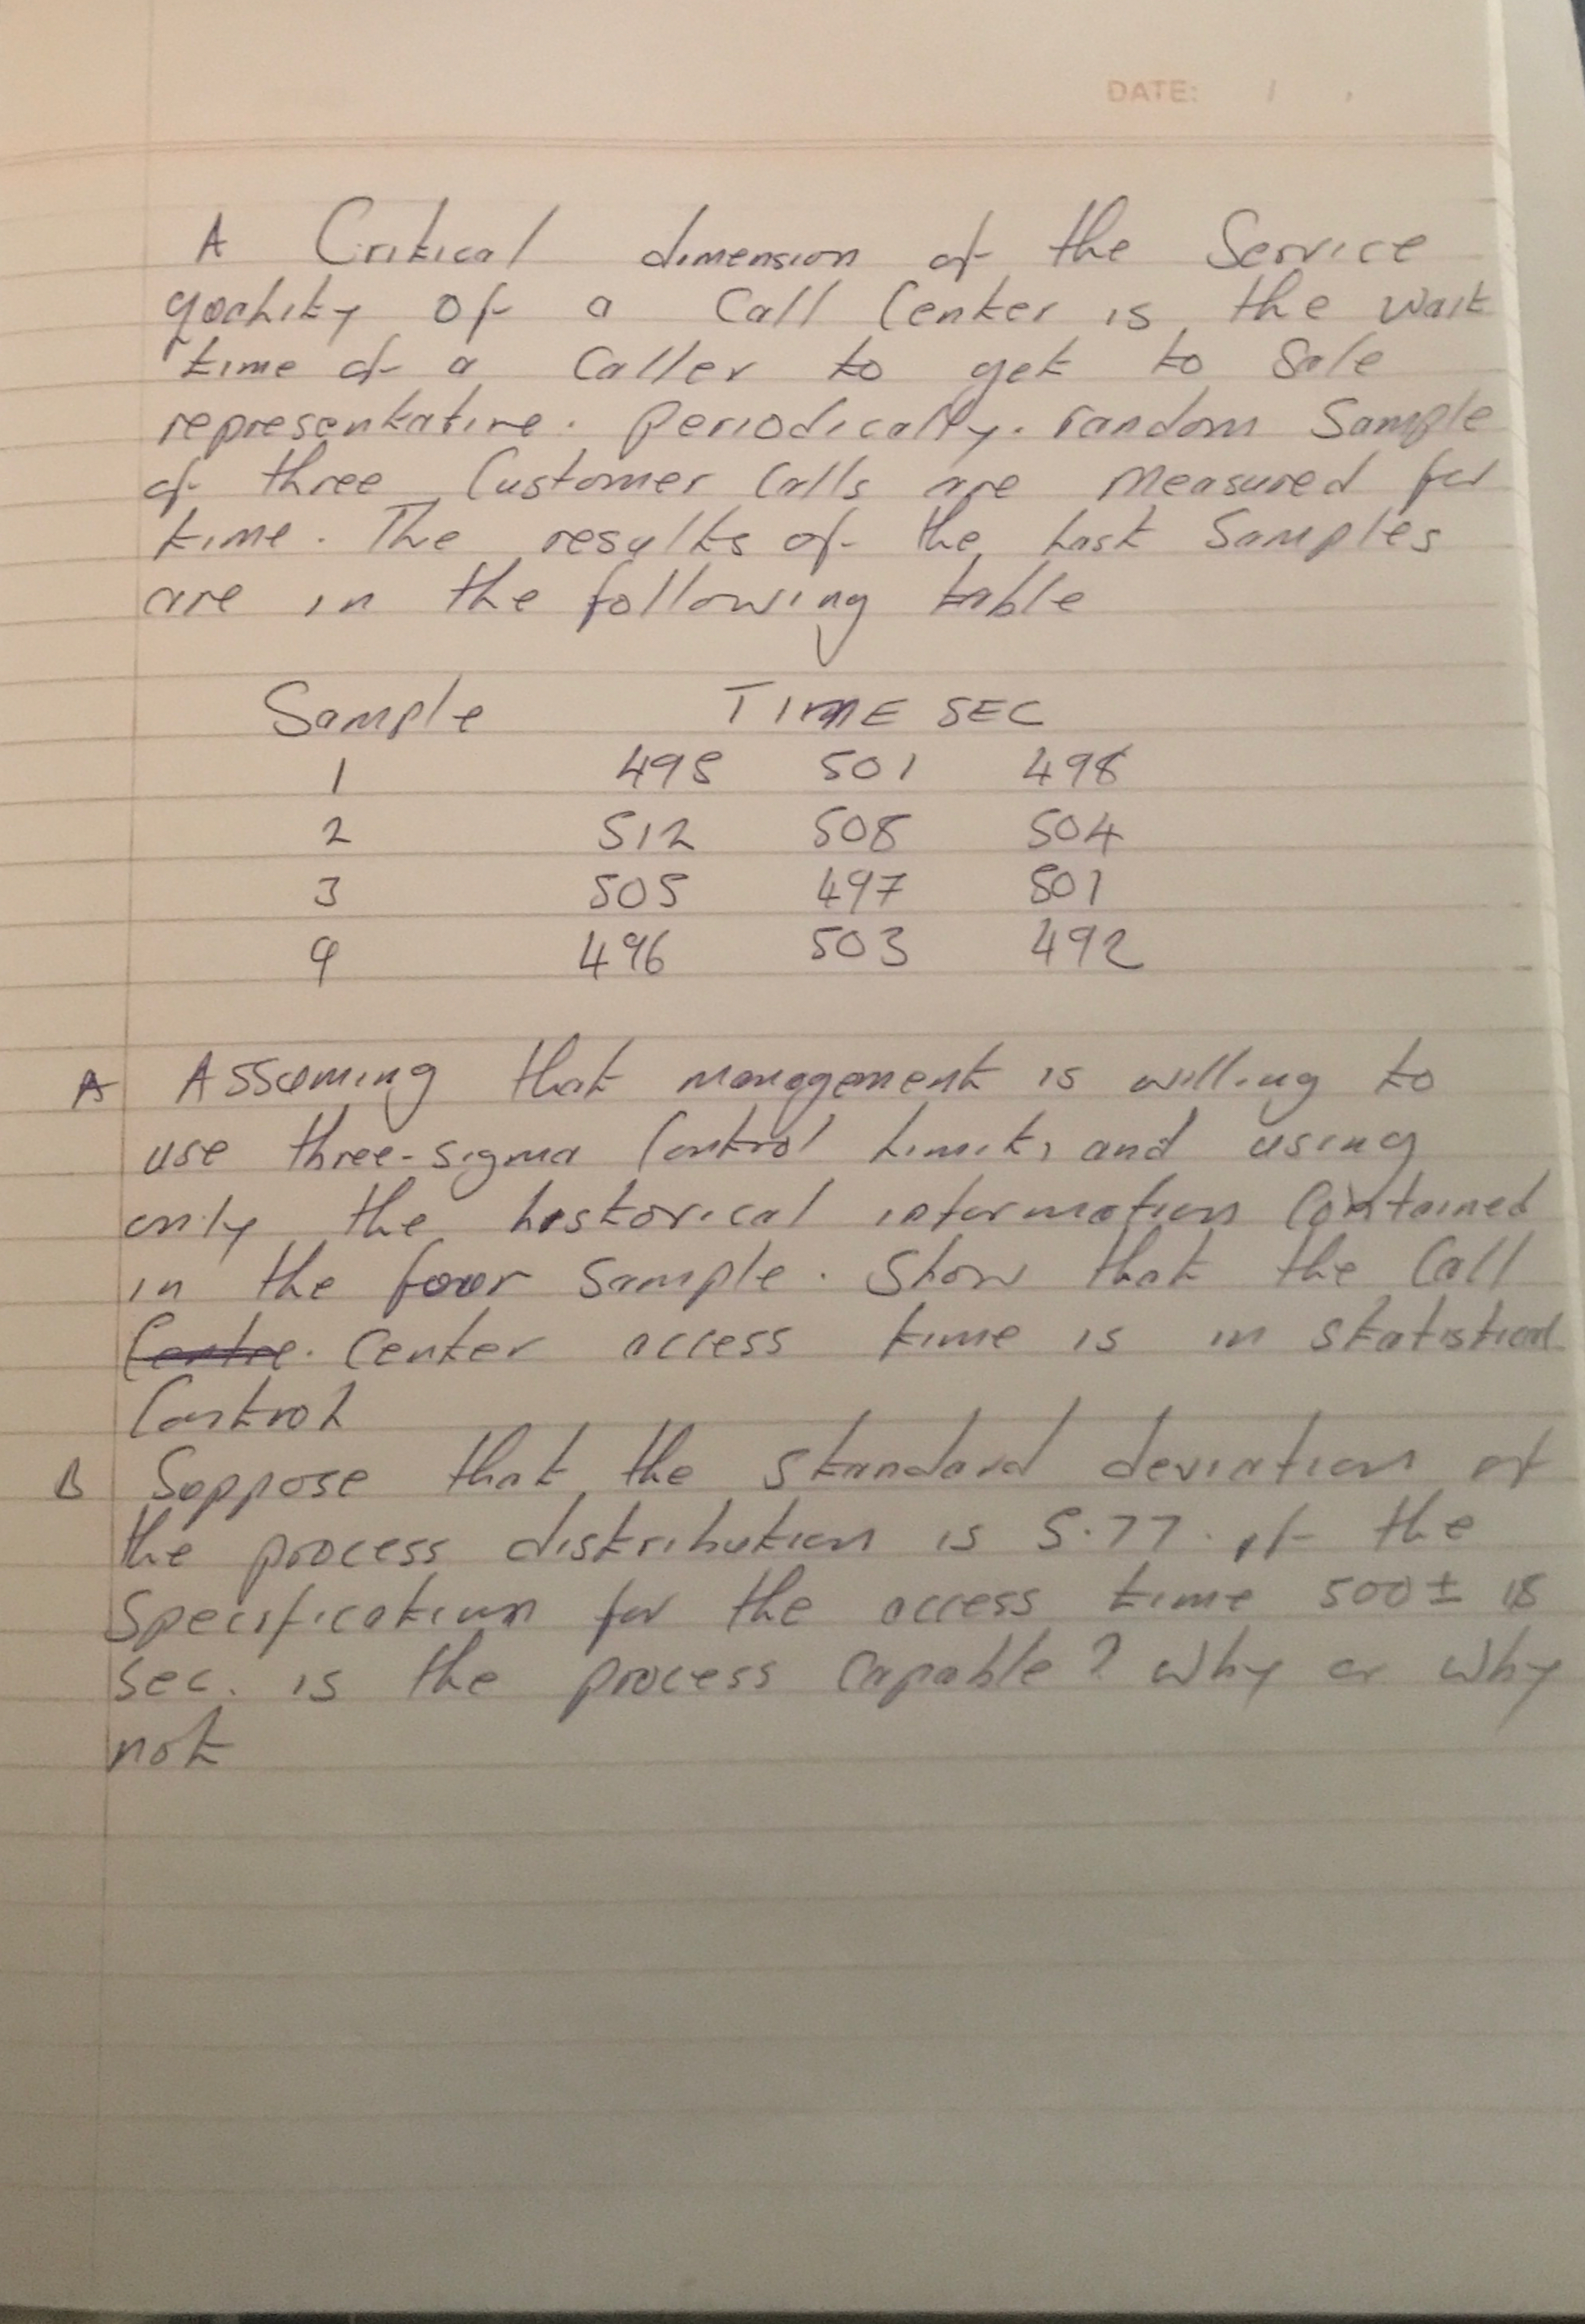 DATE: / ,
A Critical dimension of the Service
quality of a Call Center is the wait
time of a Caller to get to Sale
representative. Periodically. random Sample
of three Customer Calls are Measured for
time. The results of the last Samples
are in the following table
Sample TIME SEC
1 495 501 498
2 512 508 504
3 505 497 501
4 496 503 492
A Assuming that management is willing to
use three-sigma Control limits and using
only the historical information Contained
in the four Sample. Show that the Call
Centre. Center access time is in statistical
Control
B Suppose that the Standard deviation of
the process distribution is 5.77. if the
Specification for the access time 500 ± 18
Sec. is the process Capable? Why or Why
not